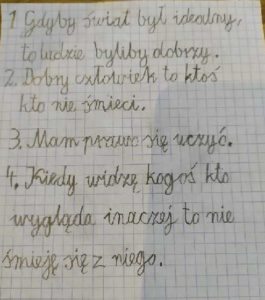 1 Gdyby świat był idealny,
to ludzie byliby dobrzy.
2. Dobry człowiek to ktoś
kto nie śmieci.
3. Mam prawo się uczyć.
4. Kiedy widzę kogoś kto
wygląda inaczej to nie
śmieję się z niego.